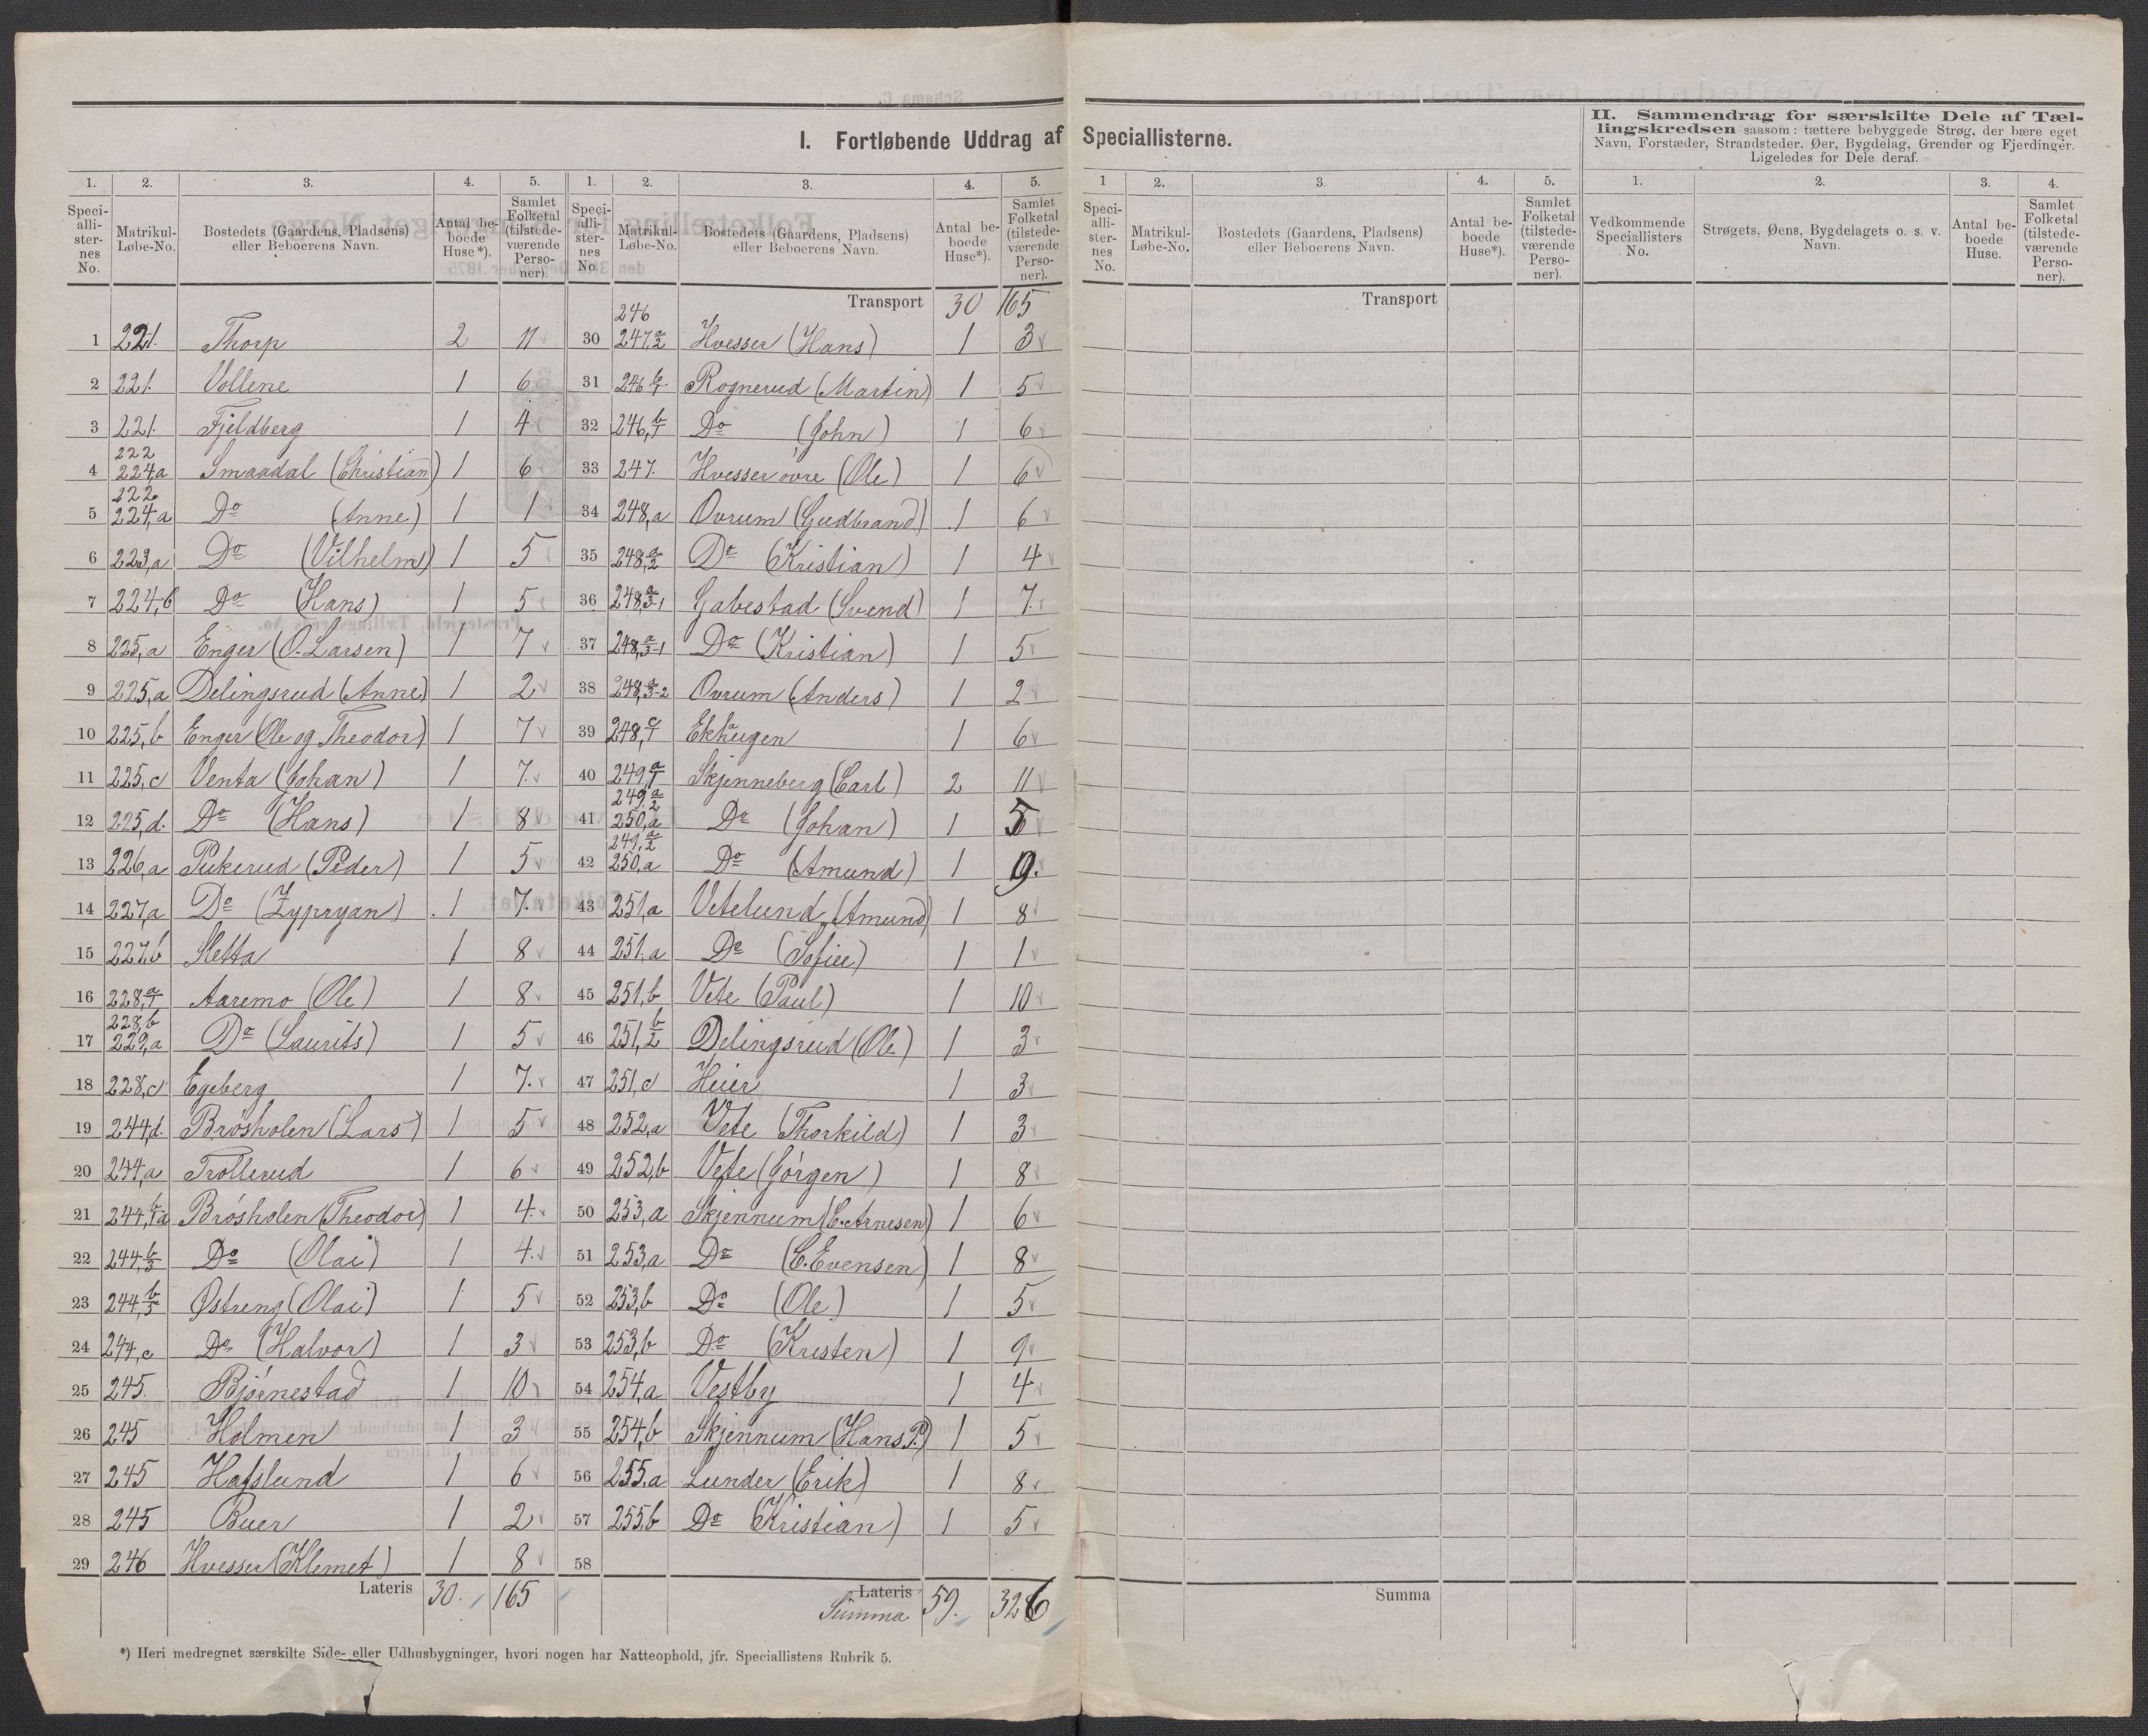 I. Fortløbende Uddrag af Speciallisterne.
II. Sammendrag for særskilte Dele af Tæl-
lingskredsen saasom: tættere bebyggede Strøg, der bære eget
Navn, Forstæder, Strandsteder, Øer, Bygdelag, Grender og Fjerdinger.
Ligeledes for Dele deraf.
1. 2. 3. 4. 5.
Speci-alli-ster-nes No. Matrikul-Løbe-No. Bostedets (Gaardens, Pladsens) eller Beboerens Navn. Antal be-boede Huse*). Samlet Folketal (tilstede-værende Perso-ner).
1 221. Thorp 2 11
2 221. Vollene 1 6
3 221. Fjeldberg 1 4
4 222 224,a Smaadal (Christian) 1 6
5 222 224,a Do (Anne) 1 1
6 223,a Do (Vilhelm) 1 5
7 224,b Do (Hans) 1 5
8 225,a Enger (O. Larsen) 1 7
9 225,a Delingsrud (Anne) 1 2
10 225,b Enger (Ole og Theodor) 1 7
11 225,c Venta (Johan) 1 7
12 225,d. Do (Hans) 1 8
13 226,a Pukerud (Peder) 1 5
14 227,a Do (Zypryan) 1 7
15 227,b Sletta 1 8
16 228,a/1 Aaremo (Ole) 1 8
17 228,b 229,a Do (Laurits) 1 5
18 228,c Egeberg 1 7
19 244,d. Brøsholen (Lars) 1 5
20 244,a Trollerud 1 6
21 244,b/1a Brøsholen (Theodor) 1 4
22 244,b/3 Do (Olai) 1 4
23 244,b/3 Østreng (Olai) 1 5
24 244,c Do (Halvor) 1 3
25 245. Bjørnestad 1 10
26 245 Holmen 1 3
27 245 Hafslund 1 6
28 245 Buer 1 2
29 246 Hvesser (Klemet) 1 8
Lateris 30. 165
1. 2. 3. 4. 5.
Speci-alli-ster-nes No. Matrikul-Løbe-No. Bostedets (Gaardens, Pladsens) eller Beboerens Navn. Antal be-boede Huse*). Samlet Folketal (tilstede-værende Perso-ner).
Transport 30 165
30 246 247,a/2 Hvesser (Hans) 1 3
31 246,b/1 Rognerud (Martin) 1 5
32 246,b/1 Do (John) 1 6
33 247. Hvesser øvre (Ole) 1 6
34 248,a Ovrum (Gudbrand) 1 6
35 248,a/2 Do (Kristian) 1 4
36 248,a/3-1 Gabestad (Svend) 1 7
37 248,a/3-1 Do (Kristian) 1 5
38 248,a/3-2 Ovrum (Anders) 1 2
39 248,c/1 Ekhaugen 1 6
40 249,a/1 Skjenneberg (Carl) 2 11
41 249,a/2 250,a Do (Johan) 1 5
42 249,a/2 250,a Do (Amund) 1 9.
43 251,a Vetelund (Amund) 1 8
44 251,a Do (Sofie) 1 1
45 251,b Vete (Paul) 1 10
46 251,b/2 Delingsrud (Ole) 1 3
47 251,c Heier 1 3
48 252,a Vete (Thorkild) 1 3
49 252,b Vete (Jørgen) 1 8
50 253,a Skjennum (C. Arnesen) 1 6
51 253,a Do (C. Evensen) 1 8
52 253,b Do (Ole) 1 5
53 253,b Do (Kresten) 1 9
54 254,a Vestby 1 4
55 254,b Skjennum (Hans P.) 1 5
56 255,a Lunder (Erik) 1 8
57 255,b Do (Kristian) 1 5
58
Lateris
Summa 59. 326
*) Heri medregnet særskilte Side- eller Udhusbygninger, hvori nogen har Natteophold, jfr. Speciallistens Rubrik 5.
1 2. 3. 4. 5.
Speci-alli-ster-nes No. Matrikul-Løbe-No. Bostedets (Gaardens, Pladsens) eller Beboerens Navn. Antal be-boede Huse*). Samlet Folketal (tilstede-værende Perso-ner).
Transport
Summa
1. 2. 3. 4.
Vedkommende Speciallisters No. Strøgets, Øens, Bygdelagets o. s. v. Navn. Antal be-boede Huse. Samlet Folketal (tilstede-værende Perso-ner).